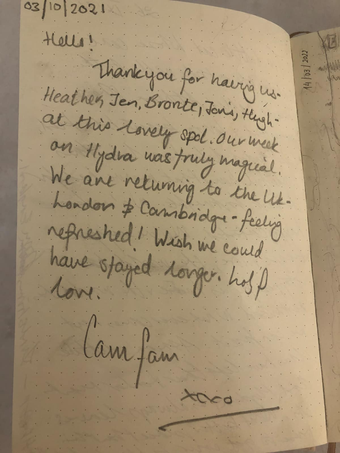 03/10/2021
Hello!
Thank you for having us-
Heather, Jen, Bronte, Joni, Hugh-
at this lovely spot. Our week
on Hydra was truly magical.
We are returning to the UK-
London & Cambridge - feeling
refreshed! Wish we could
have stayed longer. Lots of
love.
Cam fam
xoxo